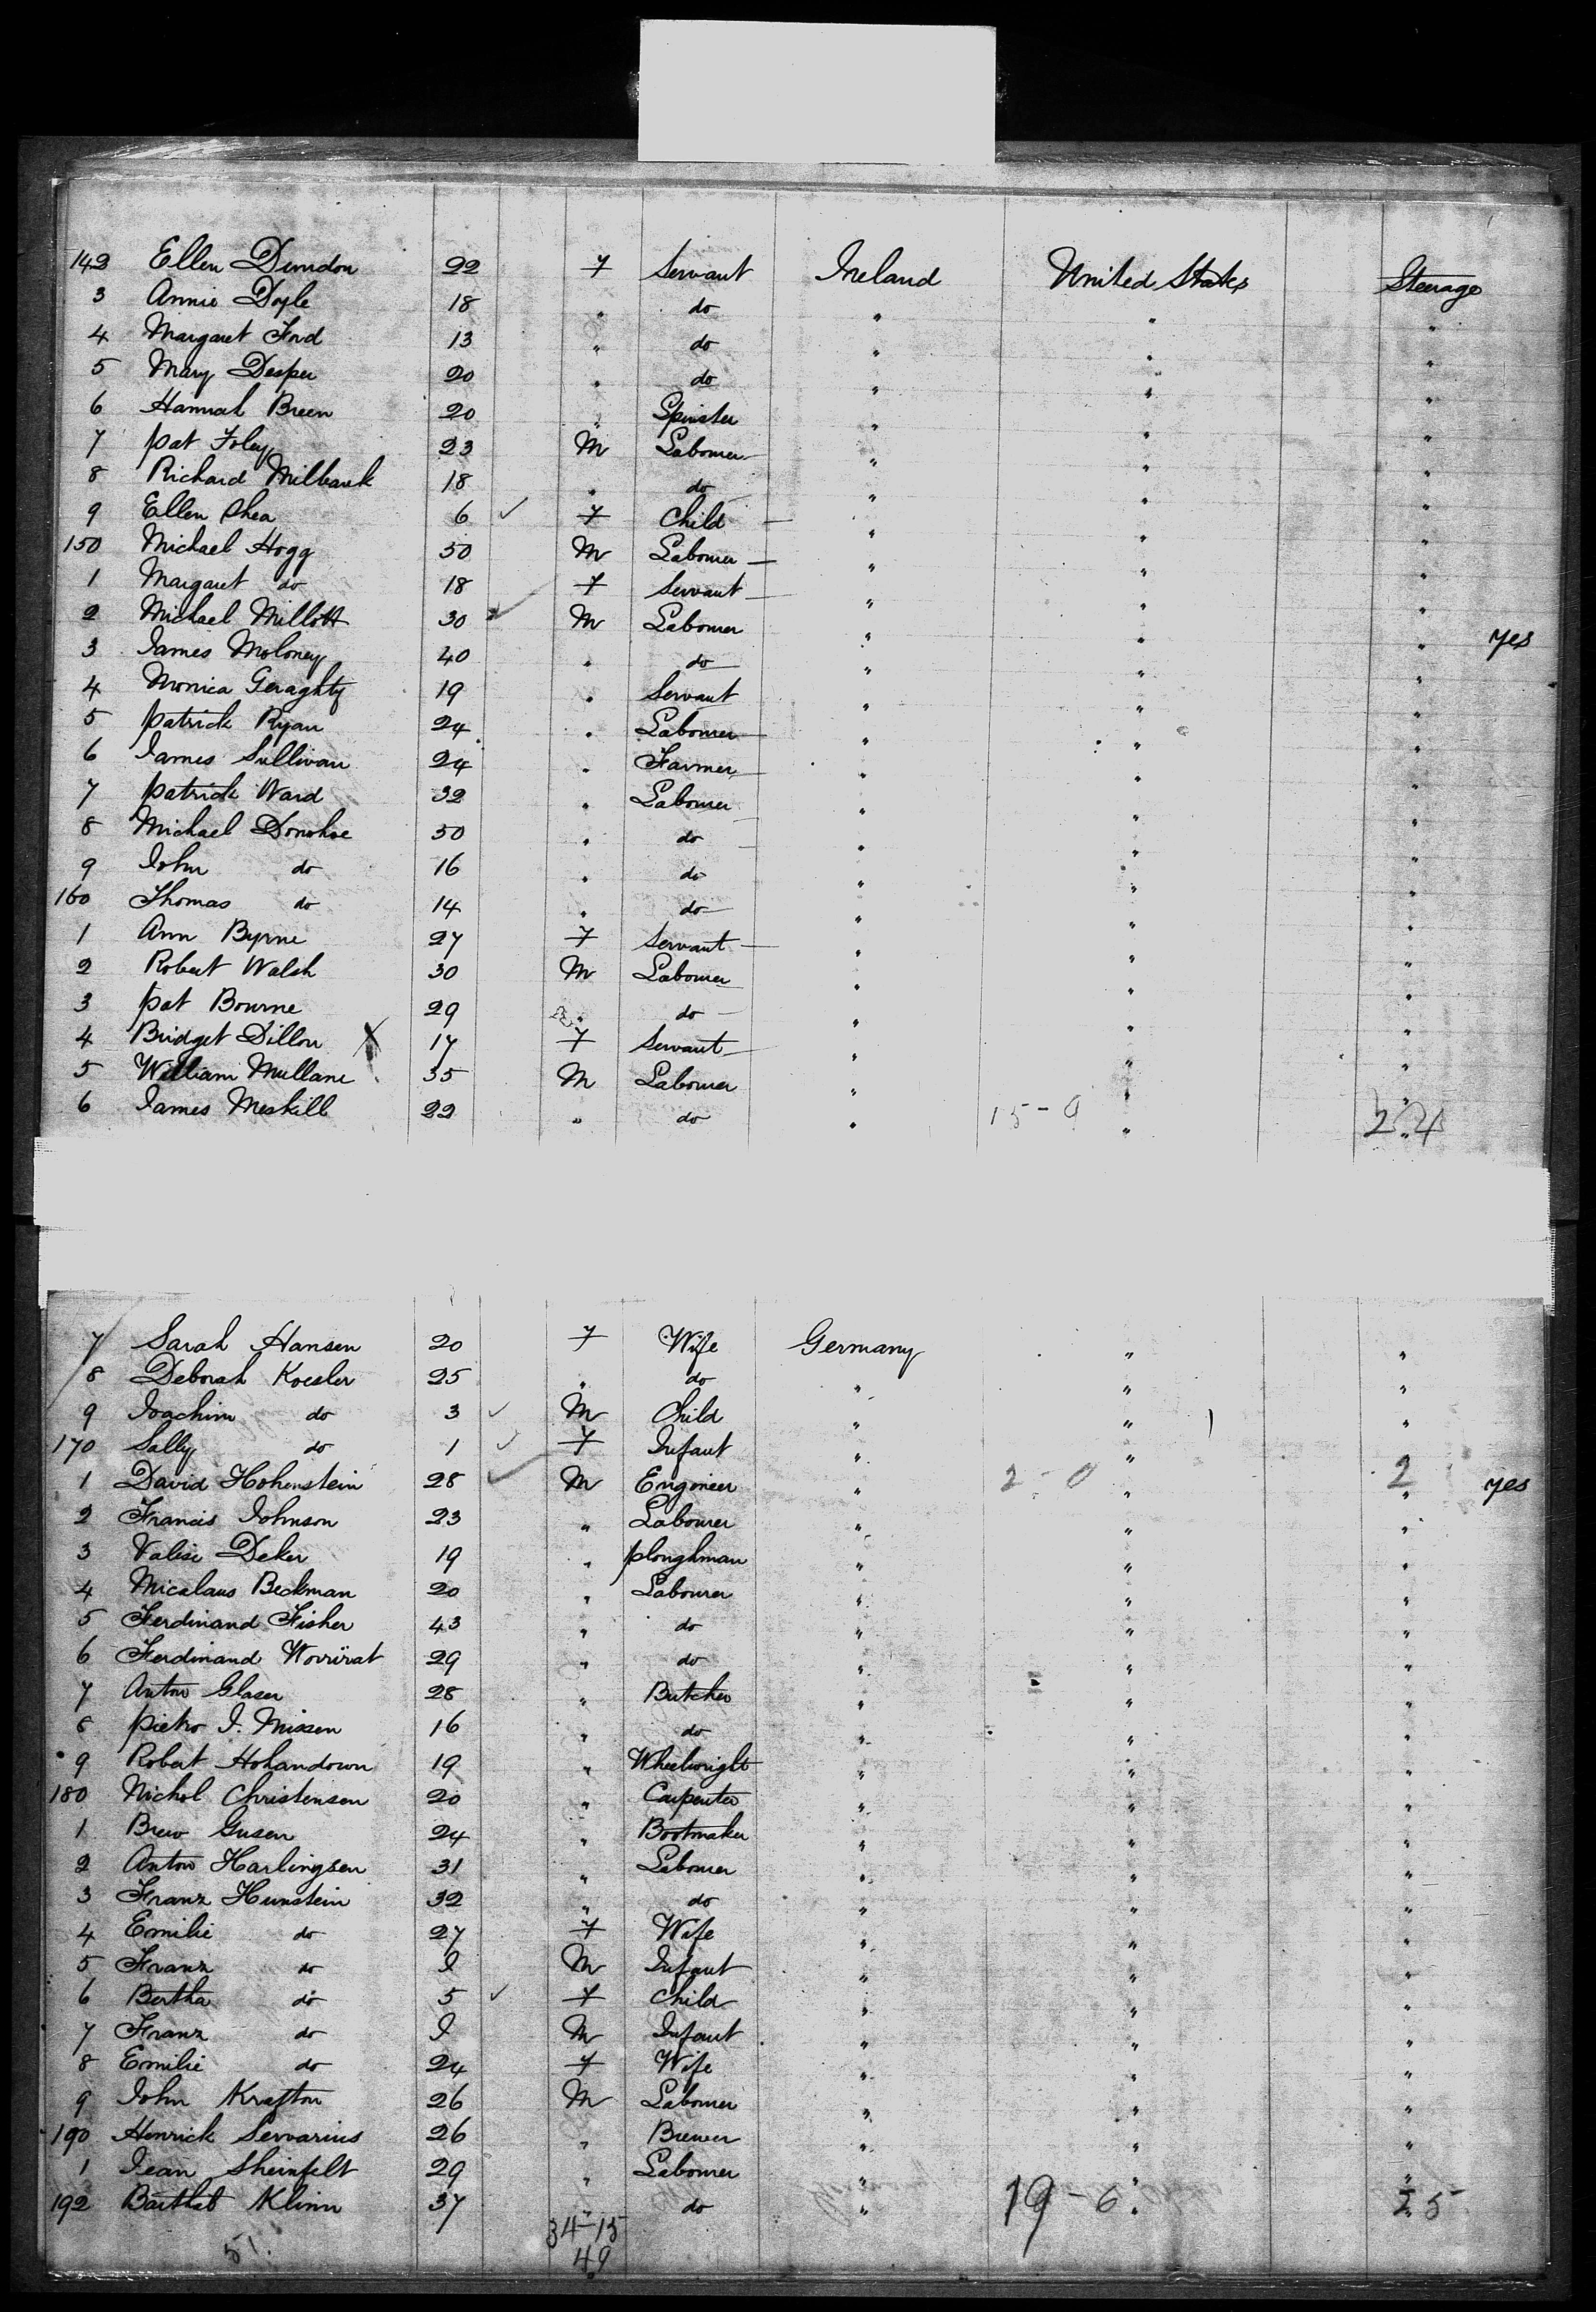 142 Ellen Dunndon 22 F Servant Ireland United States Steerage
3 Annie Doyle 18 " do " " "
4 Margaret Ford 13 " do " " "
5 Mary Desper 20 " do " " "
6 Hannah Breen 20 " Spinster " " "
7 pat Foley 23 M Labourer " " "
8 Richard Millbank 18 " do " " "
9 Ellen Shea 6 ✓ F Child " " "
150 Michael Hogg 50 M Labourer " " "
1 Margaret do 18 F Servant " " "
2 Michael Millott 30 ✓ M Labourer " " " yes
3 James Moloney 40 " do " " "
4 Monica Geraghty 19 " Servant " " "
5 patrick Ryan 24 " Labourer " " "
6 James Sullivan 24 " Farmer " " "
7 patrick Ward 32 " Labourer " " "
8 Michael Donohoe 50 " do " " "
9 John do 16 " do " " "
160 Thomas do 14 " do " " "
1 Ann Byrne 27 F Servant " " "
2 Robert Walsh 30 M Labourer " " "
3 pat Bourne 29 " do " " "
4 Bridget Dillon X 17 F Servant " " "
5 William Mullane 35 M Labourer " " "
6 James Meskill 22 " do " 15-9 " 24 "
7 Sarah Hansen 20 F Wife Germany " "
8 Deborah Koesler 25 " do " " "
9 Joachim do 3 ✓ M Child " " "
170 Sally do 1 ✓ F Infant " " "
1 David Hohenstein 28 ✓ M Engineer " 2-0 " 2 " yes
2 Francis Johnson 23 " Labourer " " "
3 Deker 19 " ploughman " " "
4 Micalaus Beckman 20 " Labourer " " "
5 Ferdinand Fisher 43 " do " " "
6 Ferdinand 29 " do " " "
7 Anton Glaser 28 " Butcher " " "
8 pietro J. Missen 16 " do " " "
9 Robert Hohandown 19 " Wheelwright " " "
180 Nichol Christensen 20 " Carpenter " " "
1 Gusen 24 " Bootmaker " " "
2 Anton Harlingsen 31 " Labourer " " "
3 Franz Hunstein 32 " do " " "
4 Emilie do 27 F Wife " " "
5 Franz do I M Infant " " "
6 Bertha do 5 ✓ F Child " " "
7 Franz do I M Infant " " "
8 Emilie do 24 F Wife " " "
9 John Krafton 26 M Labourer " " "
190 Henrick Servarius 26 " Brewer " " "
1 Jean Sheinfelt 29 " Labourer " " "
192 Klinn 37 " do " 19-6 " 25
51. 34-15
49